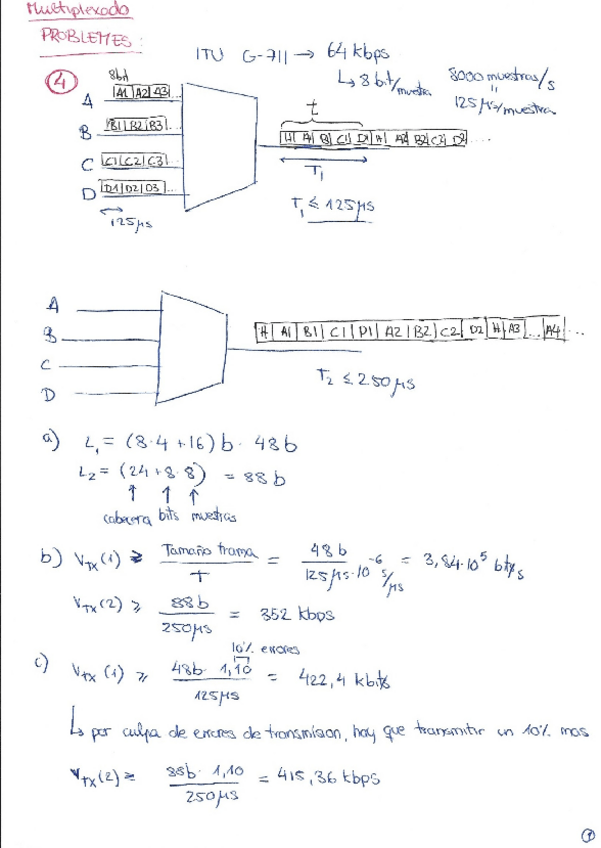 Multiplexado
PROBLEMES:
ITU G-711 → 64 kbps
↳ 8 bit/muestra
8000 muestras/s
"
125 μs/muestra
4
8bit
A A1 A2 A3 ...
B B1 B2 B3 ...
C C1 C2 C3 ...
D D1 D2 D3 ...
125μs
t
H A B C1 D1 H A2 B2 C2 D2 ...
T1
T1 ≤ 125μs
A
B
C
D
H A1 B1 C1 D1 A2 B2 C2 D2 H A3 ... A4 ...
T2 ≤ 250μs
a) L1 = (8·4 +16) b · 48b
L2 = (24+8·8) = 88b
↑ ↑ ↑
cabecera bits muestras
b) VTX(1) ≥ Tamaño trama / T = 48b / 125μs·10^-6 s/μs = 3,84·10^5 bits/s
VTX(2) ≥ 88b / 250μs = 352 kbps
10% errores
c) VTX(1) ≥ 48b · 1,10 / 125μs = 422,4 kbit/s
↳ por culpa de errores de transmision, hay que transmitir un 10% mas
VTX(2) ≥ 88b · 1,10 / 250μs = 415,36 kbps
1